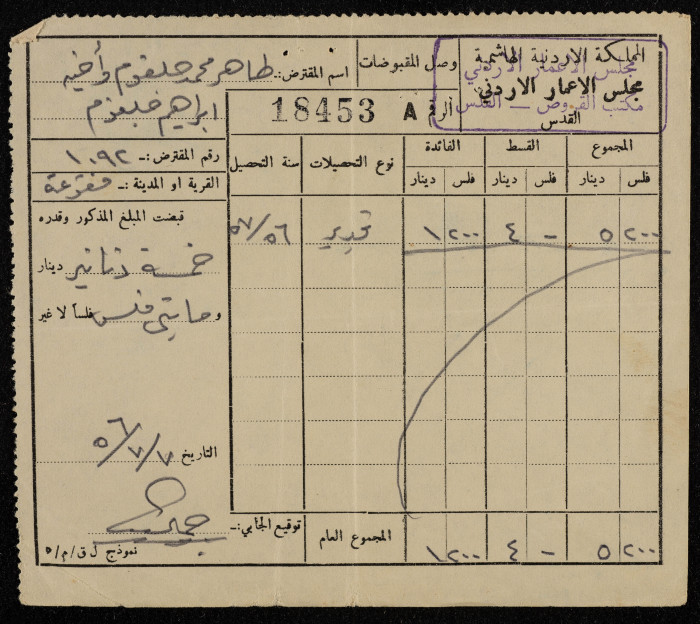 المملكة الاردنية الهاشمية
مجلس الاعمار الاردني
القدس
مجلس الاعمار الاردني
مكتب القروض — القدس
وصل المقبوضات
الرقم A 18453
اسم المقترض:ـ طاهر محمد حلقوم وأخيه
ابراهيم حلقوم
رقم المقترض :ـ ١٠٩٢
القرية او المدينة :ـ
قبضت المبلغ المذكور وقدره
خمسة دنانير دينار
و مايتي فلس فلساً لا غير
التاريخ ٥٦/٧/٧
توقيع الجابي:ـ
نموذج ل ق/م/٥
المجموع القسط الفائدة نوع التحصيلات سنة التحصيل
فلس دينار فلس دينار فلس دينار
٢٠٠ ٥ – ٤ ٢٠٠ ١ ٥٧/٥٦
المجموع العام
٢٠٠ ٥ – ٤ ٢٠٠ ١